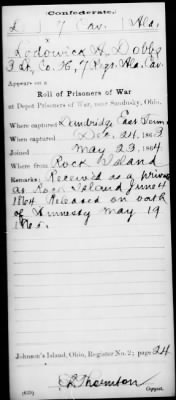 Confederate.
D 7 Cav. Ala.
Lodowick H. Dobbs
2 Lt., Co. H, 7 Regt. Ala. Cav.
Appears on a
Roll of Prisoners of War
at Depot Prisoners of War, near Sandusky, Ohio.
Where captured Danbridge East Tenn
When captured Dec. 24, 1863
Joined May 23, 1864
Where from Rock Island
Remarks: Received as a private
at Rock Island June 4
1864 Released on oath
of Amnesty May 19
1865.
Johnson's Island, Ohio, Register No. 2; page 24
Thornton
(639) Copyist.